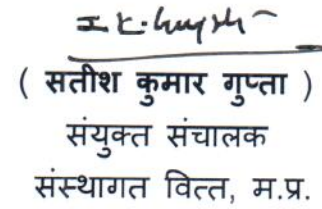 ( सतीश कुमार गुप्ता )
संयुक्त संचालक
संस्थागत वित्त, म.प्र.